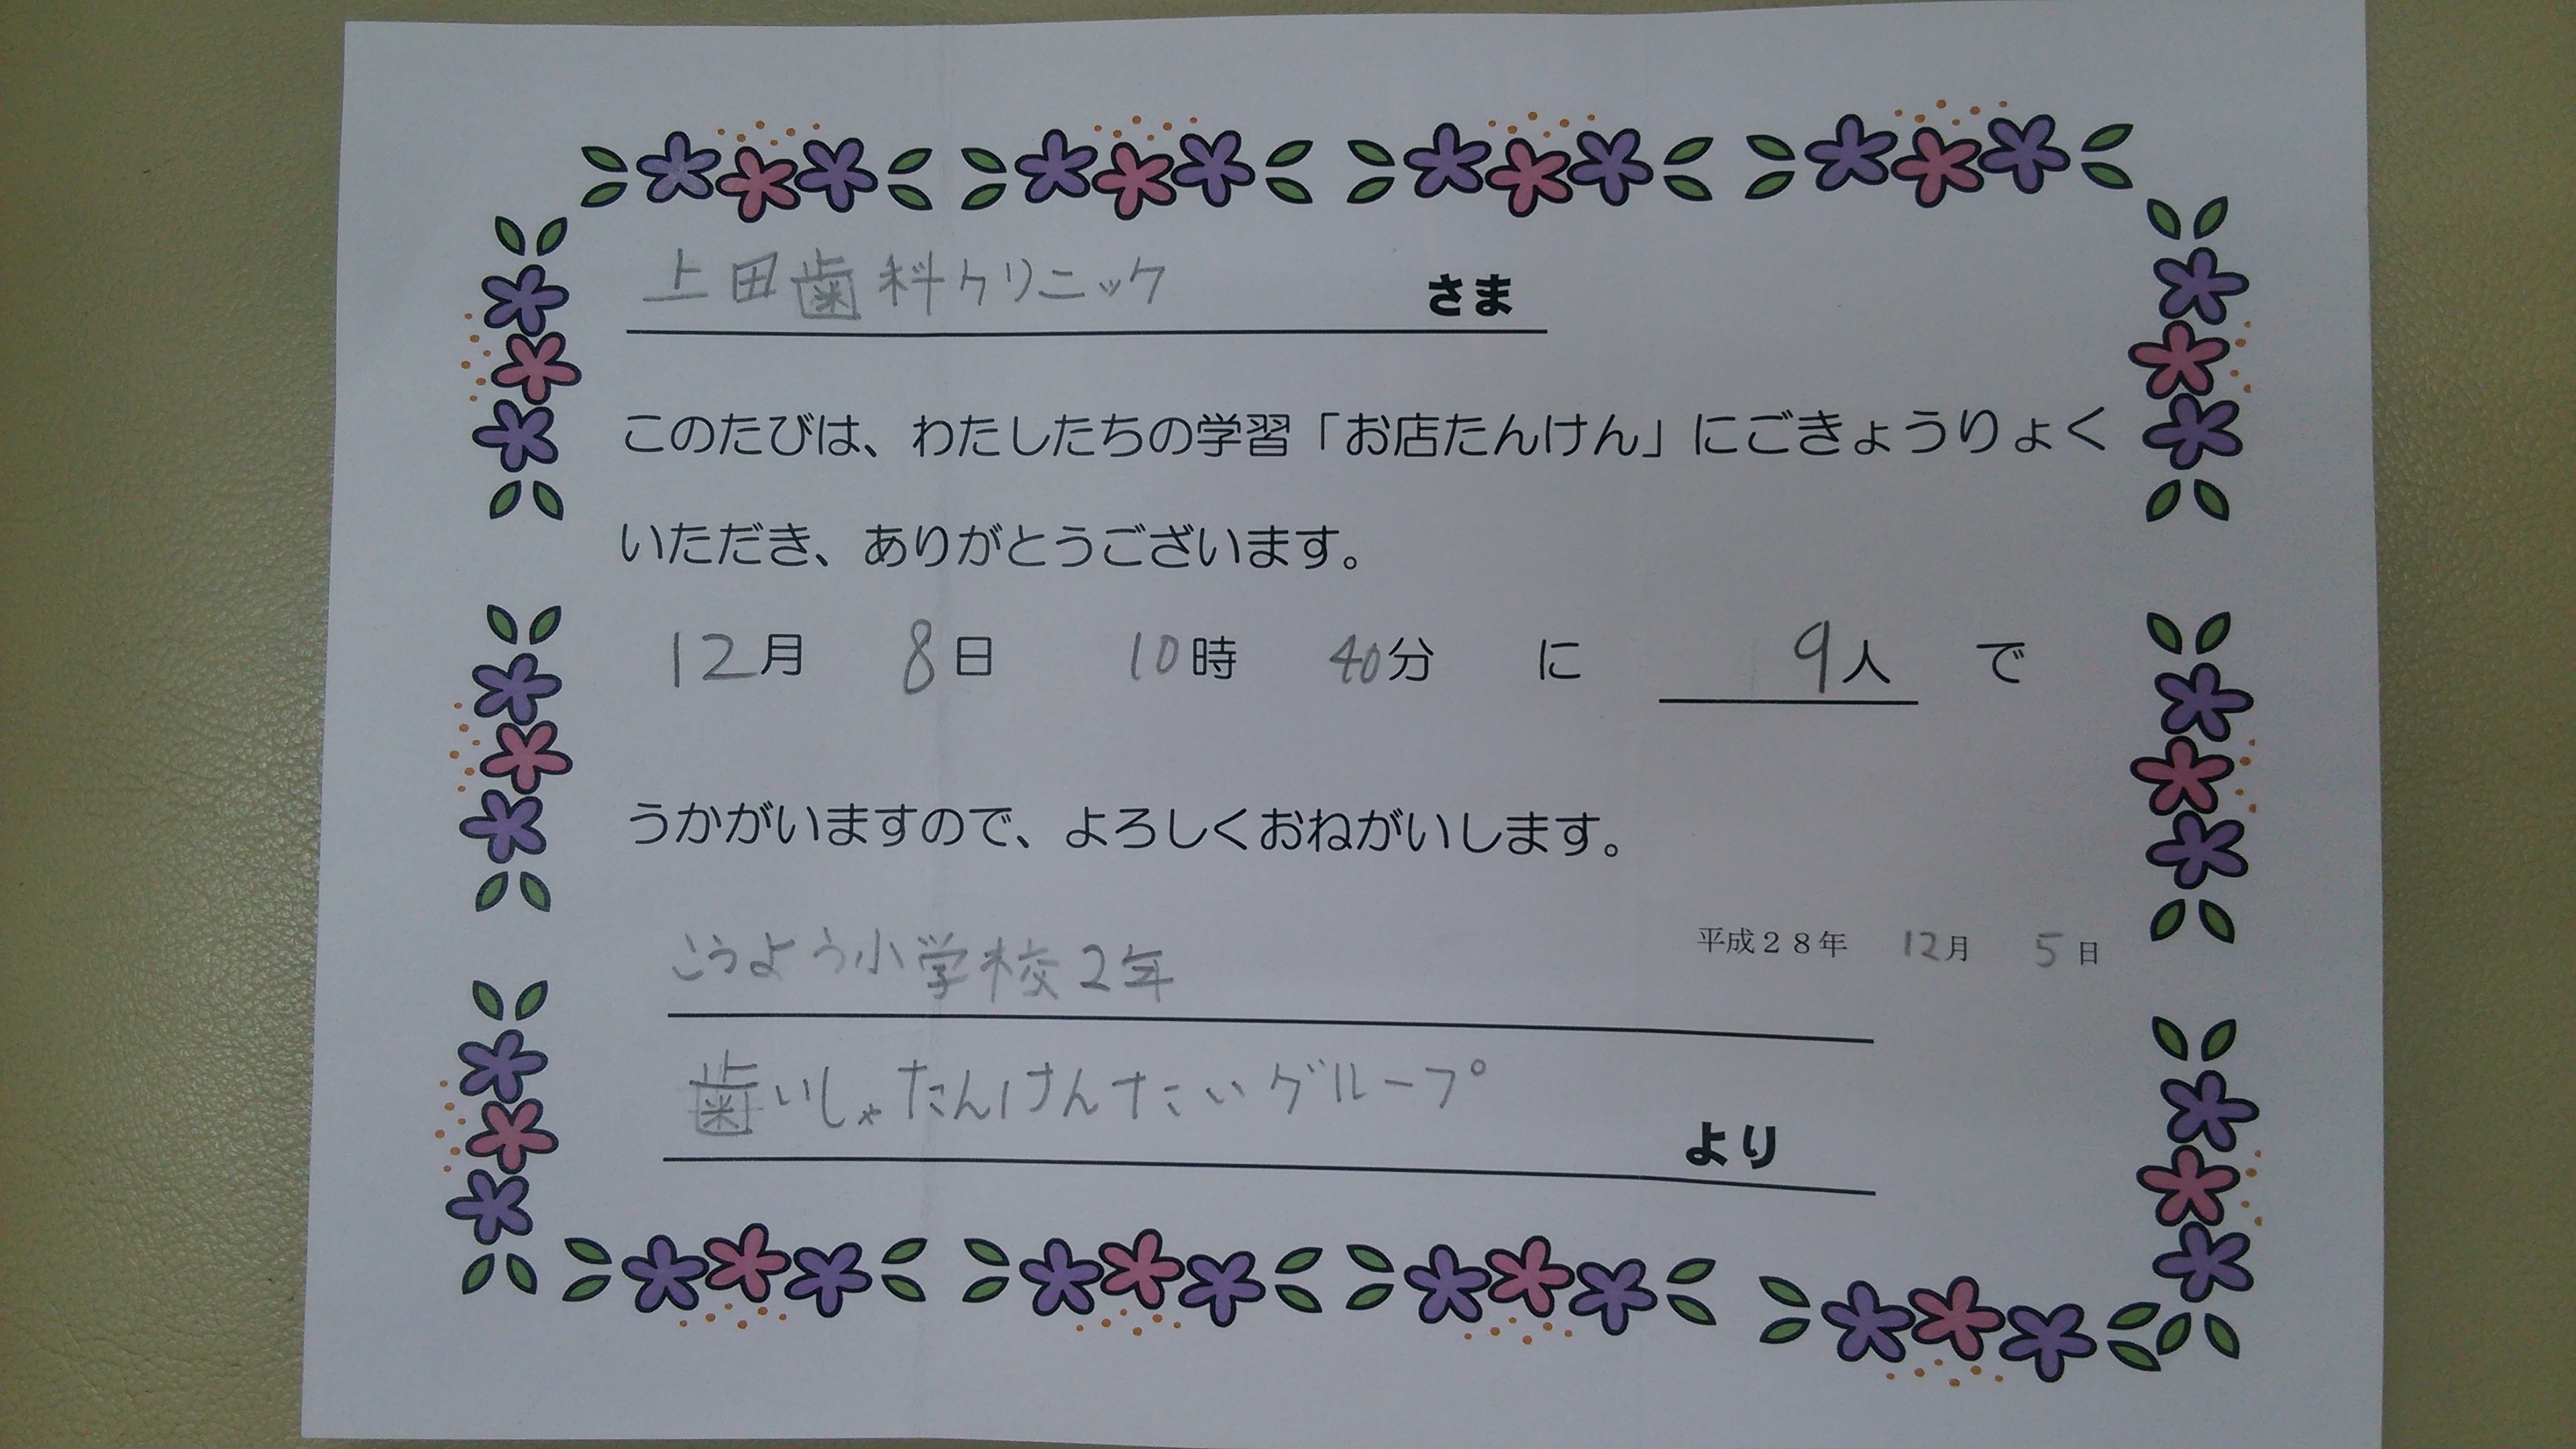 上田歯科クリニック さま
このたびは、わたしたちの学習「お店たんけん」にごきょうりょく
いただき、ありがとうございます。
12月 8日 10時 40分 に 9人 で
うかがいますので、よろしくおねがいします。
平成28年 12月 5日
こうよう小学校2年
歯いしゃたんけんたいグループ
より